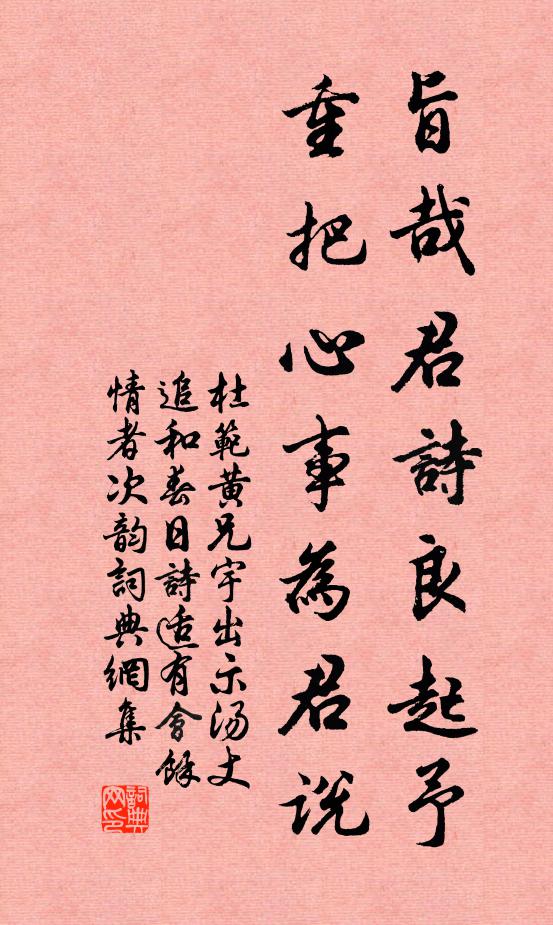 旨哉君詩良起予
重把心事為君説
杜範黄兄宇出示湯丈
追和春日詩适有會餘
情者次韵詞典網集
詞典网印